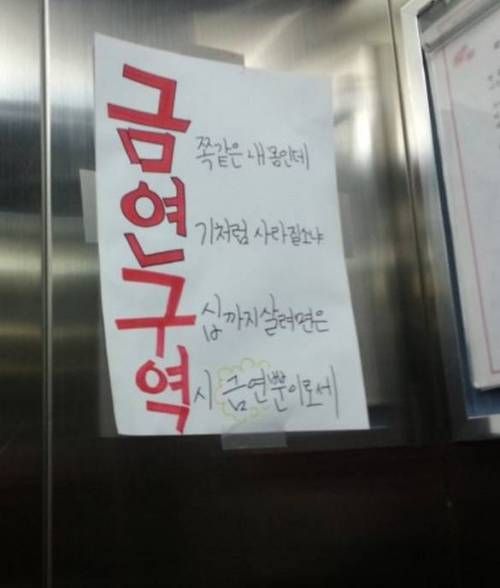 금쪽같은 내 몸인데
연기처럼 사라질소냐
구십까지 살려면은
역시 금연뿐이로세